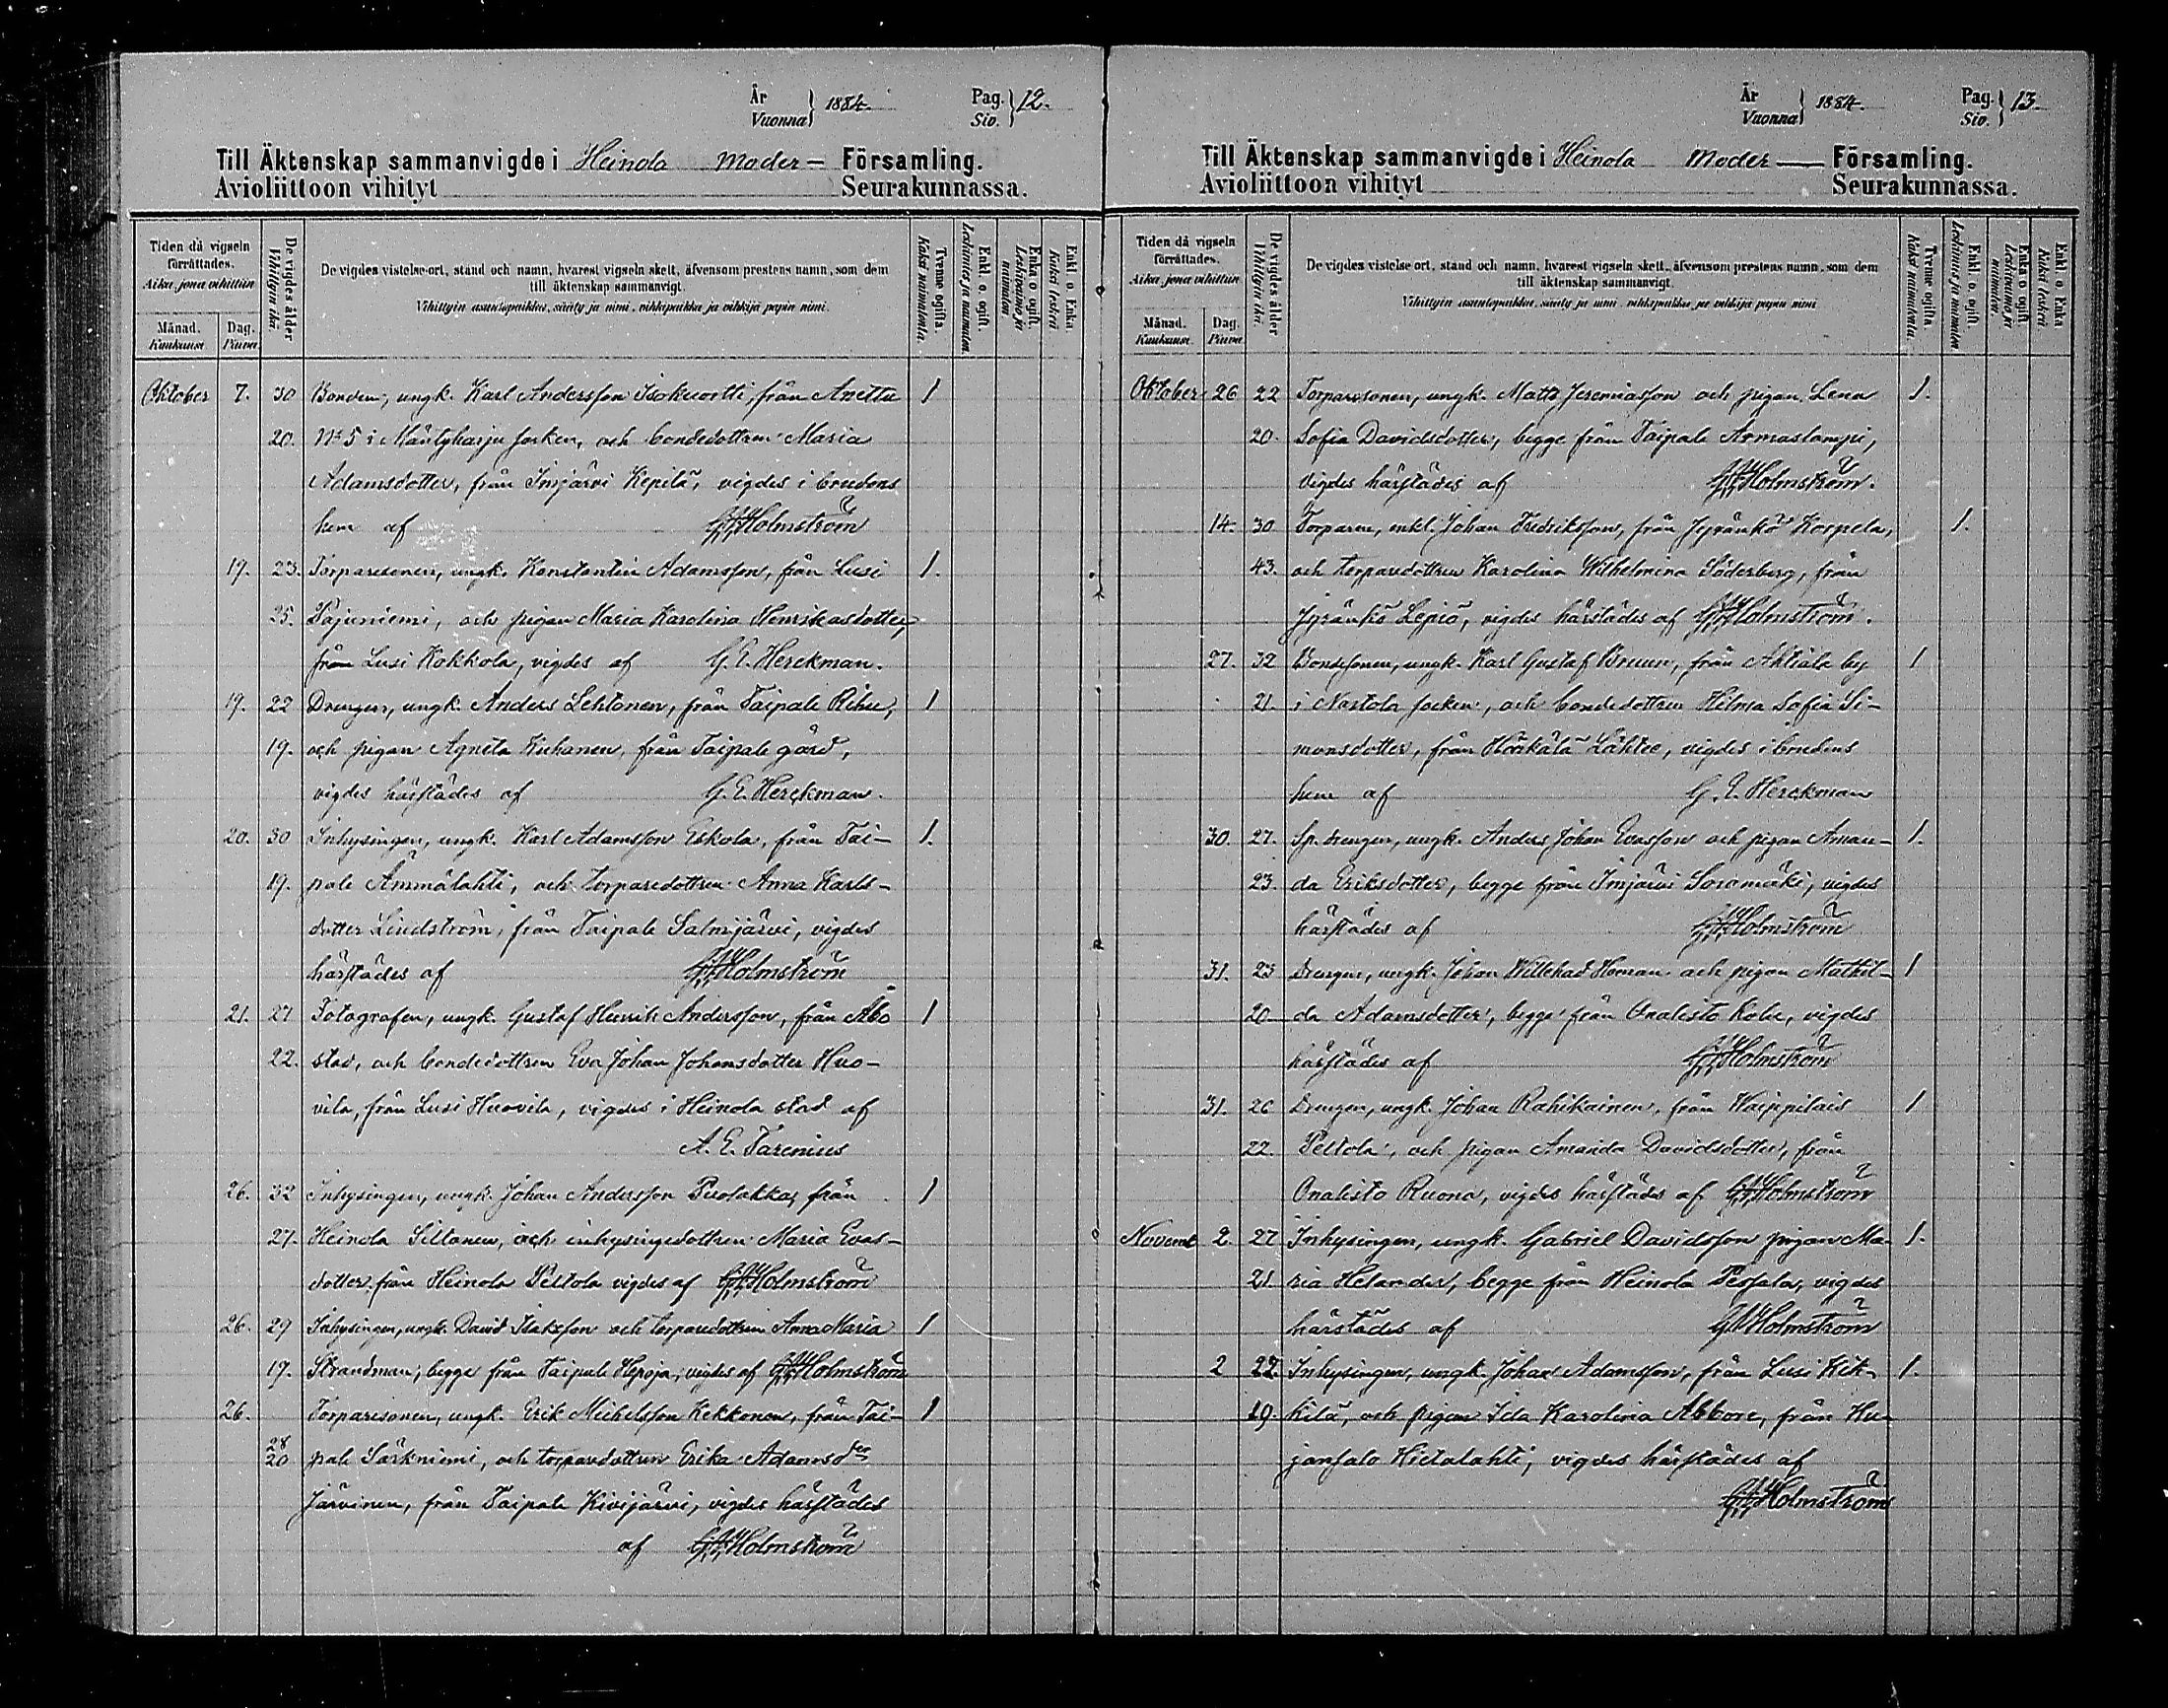 År
Vuonna } 1884.
Pag.
Siv. } 12.
Till Äktenskap sammanvigde i Heinola Moder – Församling.
Avioliittoon vihityt Seurakunnassa.
Tiden då vigseln förrättades.
Aika, jona vihittiin
Månad. Kuukausi.
Dag. Päivä.
De vigdes ålder
Vihittyin ikä
De vigdes vistelse-ort, stånd och namn, hvarest vigseln skett, äfvensom prestens namn, som dem
till äktenskap sammanvigt.
Vihittyin asuntopaikka, sääty ja nimi, vihkipaikka ja vihkijä papin nimi.
Tvenne ogifta.
Kaksi naimatonta.
Enkl. o. ogift.
Leskimies ja naimaton.
Enka o ogift.
Leskivaimo ja naimaton
Enkl. o Enka
Kaksi leskeä
Oktober 7. 30 Bonden, ungk. Karl Andersson Isokuortti, från Anettu 1
20. No 5 i Mäntyharju socken, och bondedottren Maria
Adamsdotter, från Imjärvi Kepilä, vigdes i brudens
hem af G.A. Holmström
19. 23. Torparesonen, ungk. Konstantin Adamsson, från Lusi 1.
25. Pajuniemi, och pigan Maria Karolina Henriksdotter,
från Lusi Kokkola, vigdes af G. E. Herckman.
19. 22 Drengen, ungk. Anders Lehtonen, från Taipale Rihu, 1
19. och pigan Agneta Kuhanen, från Taipale gård,
vigdes härstädes af G. E. Herckman.
20. 30 Inhysingen, ungk. Karl Adamsson Eskola, från Tai- 1.
19. pale Ämmälahti, och torparedottren Anna Karls-
dotter Lindström, från Taipale Salmijärvi, vigdes
härstädes af G.A. Holmström
21. 27 Fotografen, ungk. Gustaf Henrik Andersson, från Åbo 1
22. stad, och bondedottren Eva Johan Johansdotter Huo-
vila, från Lusi Huovila, vigdes i Heinola stad af
A. E. Farenius
26. 32 Inhysingen, ungk. Johan Andersson Puolakka, från 1
27. Heinola Siltanen, och inhysingedottren Maria Evas-
dotter från Heinola Peltola vigdes af G.A. Holmström
26. 29 Inhysingen, ungk. David Isaksson och torparedottren Anna Maria 1
19. Strandman, begge från Taipale Hepoja, vigdes af G.A. Holmström
26. Torparesonen, ungk. Erik Michelsson Kekkonen, från Tai- 1
28
20 pale Särkniemi, och torparedottren Erika Adamsder
Järvinen, från Taipale Kivijärvi, vigdes härstädes
af G.A. Holmström
År
Vuonna } 1884.
Pag.
Siv. } 13.
Till Äktenskap sammanvigde i Heinola Moder – Församling.
Avioliittoon vihityt Seurakunnassa.
Tiden då vigseln förrättades.
Aika, jona vihittiin
Månad. Kuukausi.
Dag. Päivä.
De vigdes ålder
Vihittyin ikä.
De vigdes vistelse ort, stånd och namn, hvarest vigseln skett, äfvensom prestens namn, som dem
till äktenskap sammanvigt.
Vihittyin asuntopaikka, sääty ja nimi, vihkipaikka ja vihkijä papin nimi
Tvenne ogifta
Kaksi naimatonta.
Enkl. o. ogift.
Leskimies ja naimaton
Enka o ogift.
Leskivaimo ja naimaton.
Enkl. o Enka
Kaksi leskeä
Oktober 26 22 Torparesonen, ungk. Matts Jeremiasson och pigan Lena 1.
20. Sofia Davidsdotter, begge från Taipale Armaslampi,
vigdes härstädes af G.A. Holmström.
14. 30 Torparen, enkl. Johan Fredriksson, från Jyränkö Korpela, 1.
43. och torparedottren Karolina Wilhelmina Söderberg, från
Jyränkö Lepiö, vigdes härstädes af G.A. Holmström.
27. 32 Bondesonen, ungk. Karl Gustaf Bruun, från Ahtiala by 1
21. i Nastola socken, och bondedottren Hilma Sofia Si-
monsdotter, från Härkälä Lähtee, vigdes i brudens
hem af G. E. Herckman
30. 27. Sp. drengen, ungk. Anders Johan Evasson och pigan Aman- 1.
23. da Eriksdotter, begge från Imjärvi Soramäki, vigdes
härstädes af G.A. Holmström
31. 23 Drengen, ungk. Johan Willehad Homan och pigan Mathil- 1
20 da Adamsdotter, begge från Onalisto Kolu, vigdes
härstädes af G.A. Holmström
31. 26 Drengen, ungk. Johan Rahikainen, från Waippilais 1
22. Peltola, och pigan Amanda Davidsdotter, från
Onalisto Ruona, vigdes härstädes af G.A. Holmström
Novemb 2. 27 Inhysingen, ungk. Gabriel Davidsson pigan Ma- 1.
21. ria Helander, begge från Heinola Perhala, vigdes
härstädes af G.A. Holmström
2 22. Inhysingen, ungk. Johan Adamsson, från Lusi Kik- 1.
19. kilä, och pigan Ida Karolina Abbore, från Hu-
jansalo Hietalahti, vigdes härstädes af
G.A. Holmström